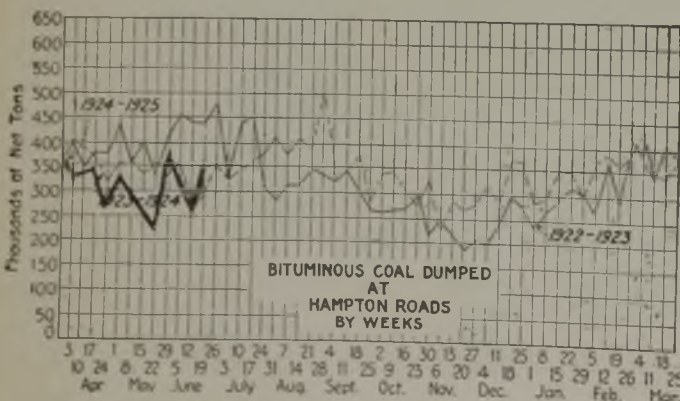 650
600
550
500
450
400
350
300
250
200
150
100
50
0
Thousands of Net Tons
1924-1925
1923-1924
1922-1923
BITUMINOUS COAL DUMPED
AT
HAMPTON ROADS
BY WEEKS
3 17 1 15 29 12 26 10 24 7 21 4 18 2 16 30 13 27 11 25 8 22 5 19 4 18
10 24 8 22 5 19 3 17 31 14 28 11 25 9 23 6 20 4 18 1 15 29 12 26 11 25
Apr May June July Aug. Sept. Oct. Nov. Dec. Jan. Feb. Mar